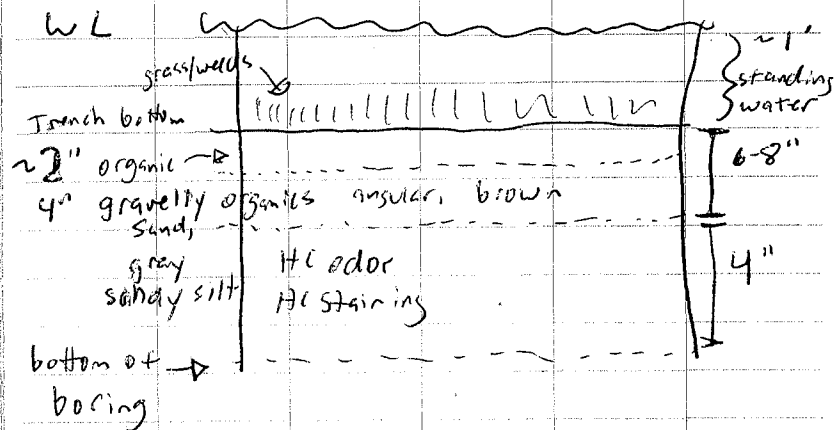 WL
~1'
standing
water
grass/weeds
Trench bottom
~2" organic
6-8"
4" gravelly organics angular, brown
sand,
gray HC odor
sandy silt HC staining
4"
bottom of
boring